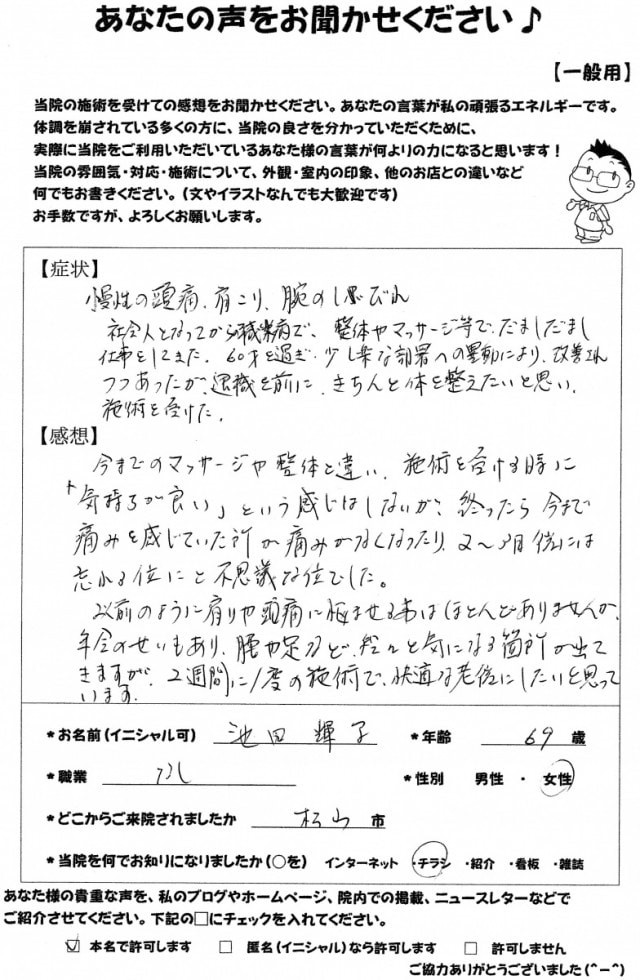 あなたの声をお聞かせください♪
【一般用】
当院の施術を受けての感想をお聞かせください。あなたの言葉が私の頑張るエネルギーです。
体調を崩されている多くの方に、当院の良さを分かっていただくために、
実際に当院をご利用いただいているあなた様の言葉が何よりの力になると思います！
当院の雰囲気・対応・施術について、外観・室内の印象、他のお店との違いなど
何でもお書きください。（文やイラストなんでも大歓迎です）
お手数ですが、よろしくお願いします。
【症状】
慢性の頭痛、肩こり、腕のしびれ
社会人となってから職業病で、整体やマッサージ等で、だましだまし
仕事をしてきた。60才を過ぎ、少し楽な部署への異動により、改善され
つつあったが、退職を前に、きちんと体を整えたいと思い、
施術を受けた。
【感想】
今までのマッサージや整体と違い、施術を受ける時に
「気持ちが良い」という感じはしないが、終ったら今まで
痛みを感じていた所が痛みがなくなったり、2～3日後には
忘れる位にと不思議な位でした。
以前のように肩こりや頭痛に悩ませる事はほとんどありませんが、
年令のせいもあり、腰や足など、色々と気になる箇所が出て
きますが、2週間に1度の施術で、快適な老後にしたいと思って
います。
*お名前(イニシャル可) 池田 輝子 *年齢 69 歳
*職業 なし *性別 男性 ・ 女性
*どこからご来院されましたか 松山 市
*当院を何でお知りになりましたか(○を) インターネット ・チラシ ・紹介 ・看板 ・雑誌
あなた様の貴重な声を、私のブログやホームページ、院内での掲載、ニュースレターなどで
ご紹介させてください。下記の□にチェックを入れてください。
☑ 本名で許可します □ 匿名(イニシャル)なら許可します □ 許可しません
ご協力ありがとうございました(^-^)